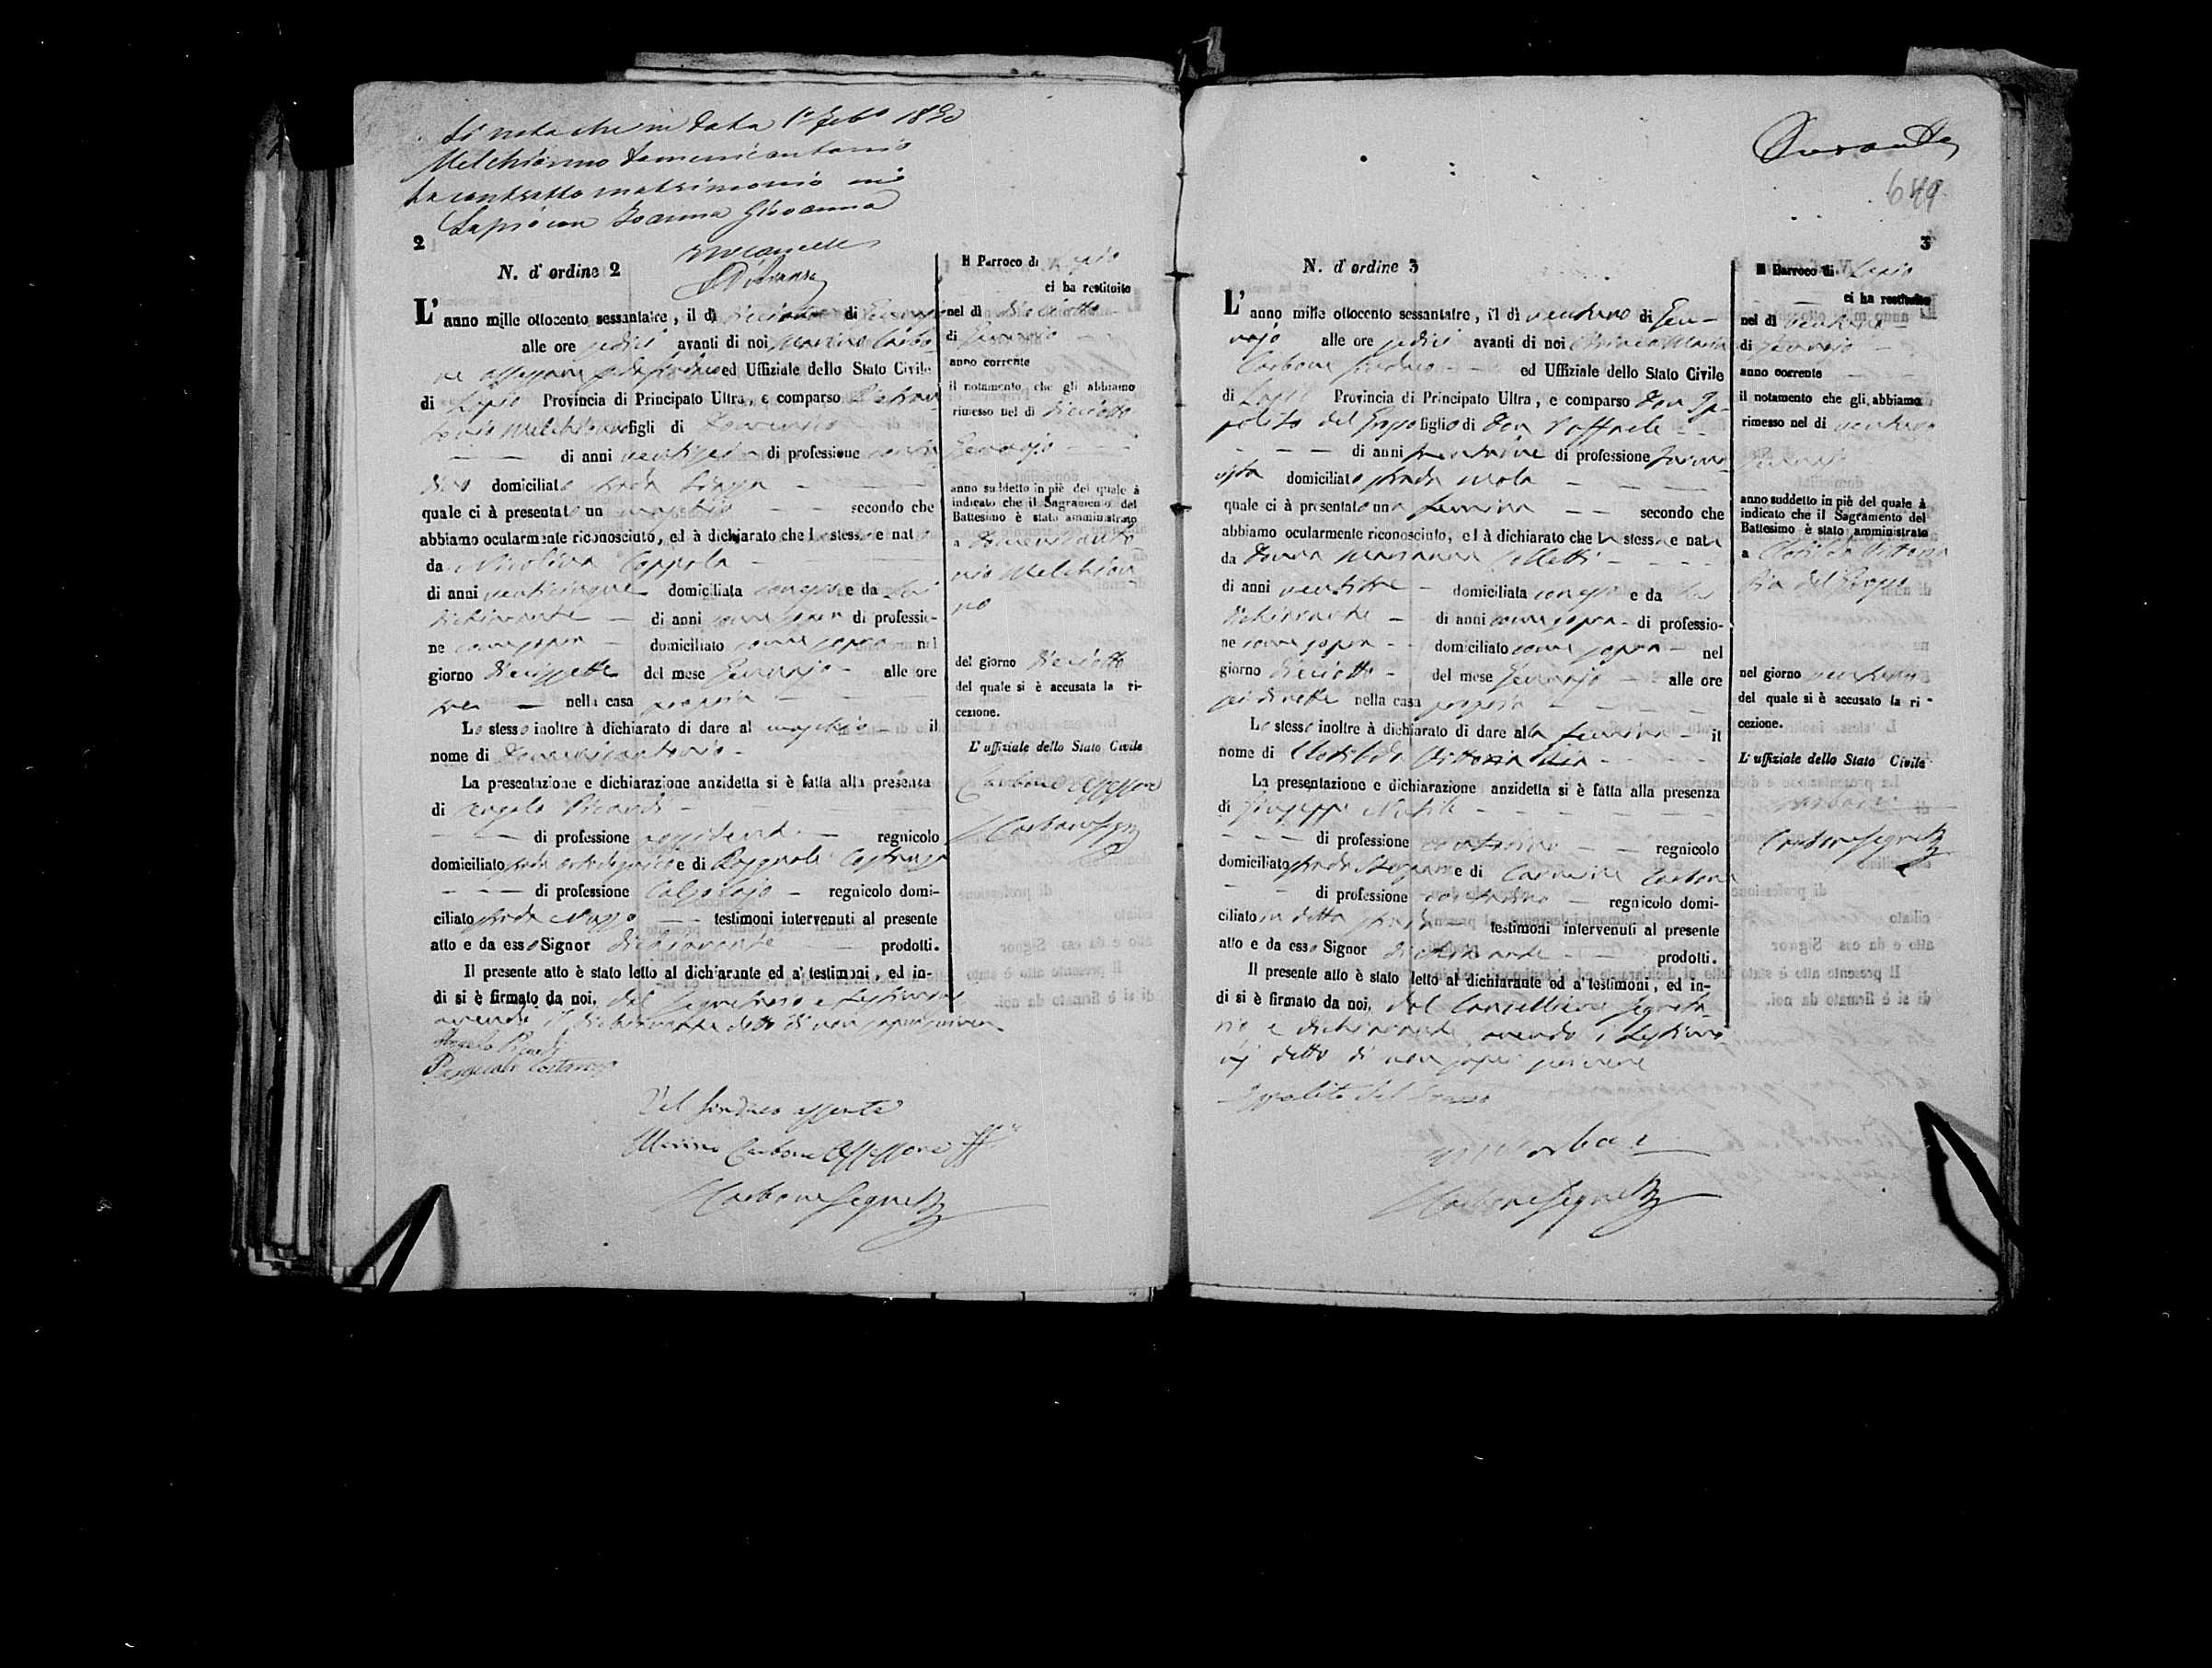 Si nota che in data 1° Febb° 18
Melchionno Domenicantonio
ha contratto matrimonio in
Lapio con Ioanna Giovanna
2
N. d'ordine 2
L'anno mille ottocento sessantatre, il dì dieciotto di Gennajo
alle ore sedici avanti di noi Marino Carbo-
ne Assessore ed Uffiziale dello Stato Civile
di Lapio Provincia di Principato Ultra, è comparso
Melchionno figli di
di anni ventisei di professione conta-
dino domiciliato strada
quale ci à presentato un maschio secondo che
abbiamo ocularmente riconosciuto, ed à dichiarato che lo stesso e nato
da Nicolina Coppola
di anni venticinque domiciliata con esso e da lui
dichiarante di anni come sopra di professio-
ne come sopra domiciliato come sopra nel
giorno diecissette del mese Gennajo alle ore
tre nella casa propria
Lo stesso inoltre à dichiarato di dare al maschio il
nome di Domenicantonio
La presentazione e dichiarazione anzidetta si è fatta alla presenza
di Angelo Picardi
di professione possidente regnicolo
domiciliato strada e di Pasquale Costanzo
di professione Calzolajo regnicolo domi-
ciliato strada testimoni intervenuti al presente
atto e da esso Signor dichiarante prodotti.
Il presente atto è stato letto al dichiarante ed a' testimoni, ed in-
di si è firmato da noi, dal Segretario e testimoni
avendo il dichiarante detto di non saper scrivere
Angelo Picardi
Pasquale Costanzo
Pel Sindaco assente
Marino Carbone Assessore ff
Carbone Segret
Il Parroco di Lapio
ci ha restituito
nel dì dieciotto
di Gennajo
anno corrente
il notamento che gli abbiamo
rimesso nel dì dieciotto
Gennajo
anno suddetto in piè del quale à
indicato che il Sagramento del
Battesimo è stato amministrato
a Domenicanto
nio Melchion
no
del giorno dieciotto
del quale si è accusata la ri-
cezione.
L'uffiziale dello Stato Civile
Carbone Assessore
Carbone Segret
649
3
N. d'ordine 3
L'anno mille ottocento sessantatre, il dì ventuno di Gen-
najo alle ore sedici avanti di noi Maria
Carbone Sindaco ed Uffiziale dello Stato Civile
di Lapio Provincia di Principato Ultra, e comparso Don Ip-
polito del Grosso figlio di Don Raffaele
di anni di professione Farma-
cista domiciliato strada Mola
quale ci à presentato una femina secondo che
abbiamo ocularmente riconosciuto, ed à dichiarato che la stessa e nata
da Donna Marianna Colletti
di anni ventitre domiciliata con esso e da lui
dichiarante di anni come sopra di professio-
ne come sopra domiciliato come sopra nel
giorno dieciotto del mese Gennajo alle ore
sei di notte nella casa propria
Lo stesso inoltre à dichiarato di dare alla femina il
nome di Clotilda Vittoria Pia
La presentazione e dichiarazione anzidetta si è fatta alla presenza
di Giuseppe
di professione contadino regnicolo
domiciliato strada e di Carmine Carbone
di professione contadino regnicolo domi-
ciliato in detta strada testimoni intervenuti al presente
atto e da esso Signor dichiarante prodotti.
Il presente atto è stato letto al dichiarante ed a' testimoni, ed in-
di si è firmato da noi, dal Cancelliere Segreta-
rio e dichiarante avendo i testimo-
nj detto di non saper scrivere
Ippolito del Grosso
Carbone Segret
Il Parroco di Lapio
ci ha restituito
nel dì ventuno
di Gennajo
anno corrente
il notamento che gli abbiamo
rimesso nel dì ventuno
Gennajo
anno suddetto in piè del quale à
indicato che il Sagramento del
Battesimo è stato amministrato
a Clotilda Vittoria
Pia del Grosso
nel giorno ventuno
del quale si è accusato la ri-
cezione.
L'uffiziale dello Stato Civile
Carbone
Carbone Segret